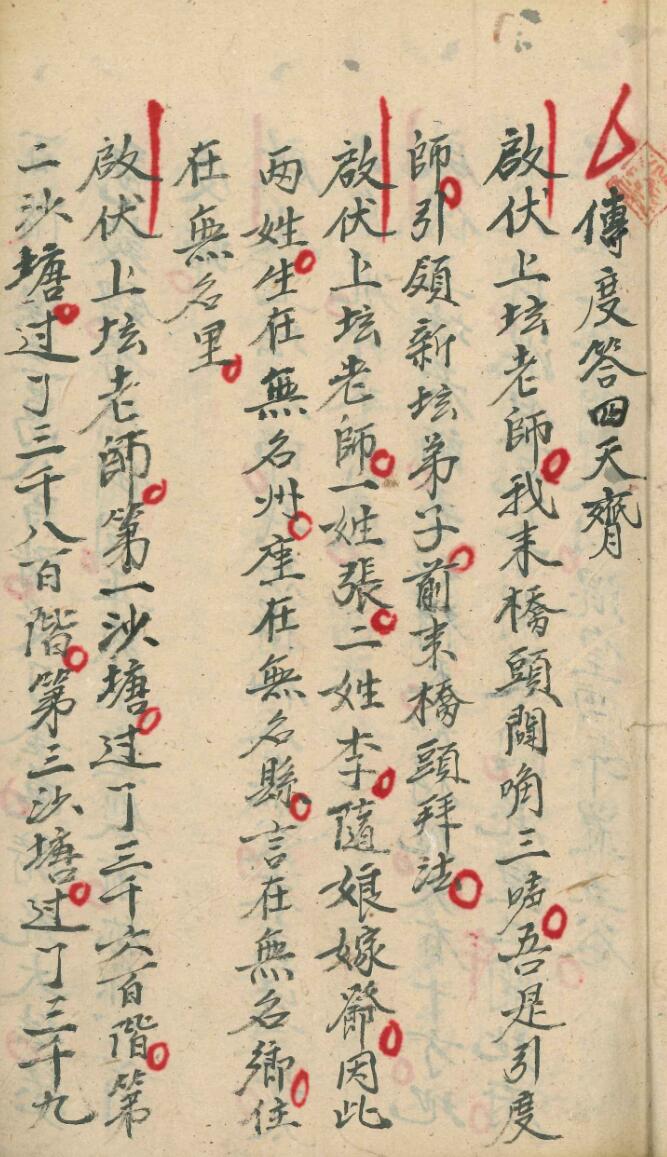 傳度答四天齊
啟伏上坛老師。我来橋頭闻角三声。吾是引度
師。引領新坛弟子。前来橋頭拜法。
啟伏上坛老師。一姓張。二姓李。隨娘嫁爺。因此
两姓。生在無名州。座在無名縣。言在無名鄉。住
在無名里。
啟伏上坛老師。第一沙塘。过了三千六百階。第
二沙塘。过了三千八百階。第三沙塘。过了三千九